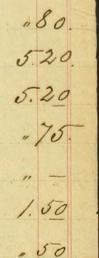 " 80.
5.20.
5.20
" 75.
" —
1.50
" 50